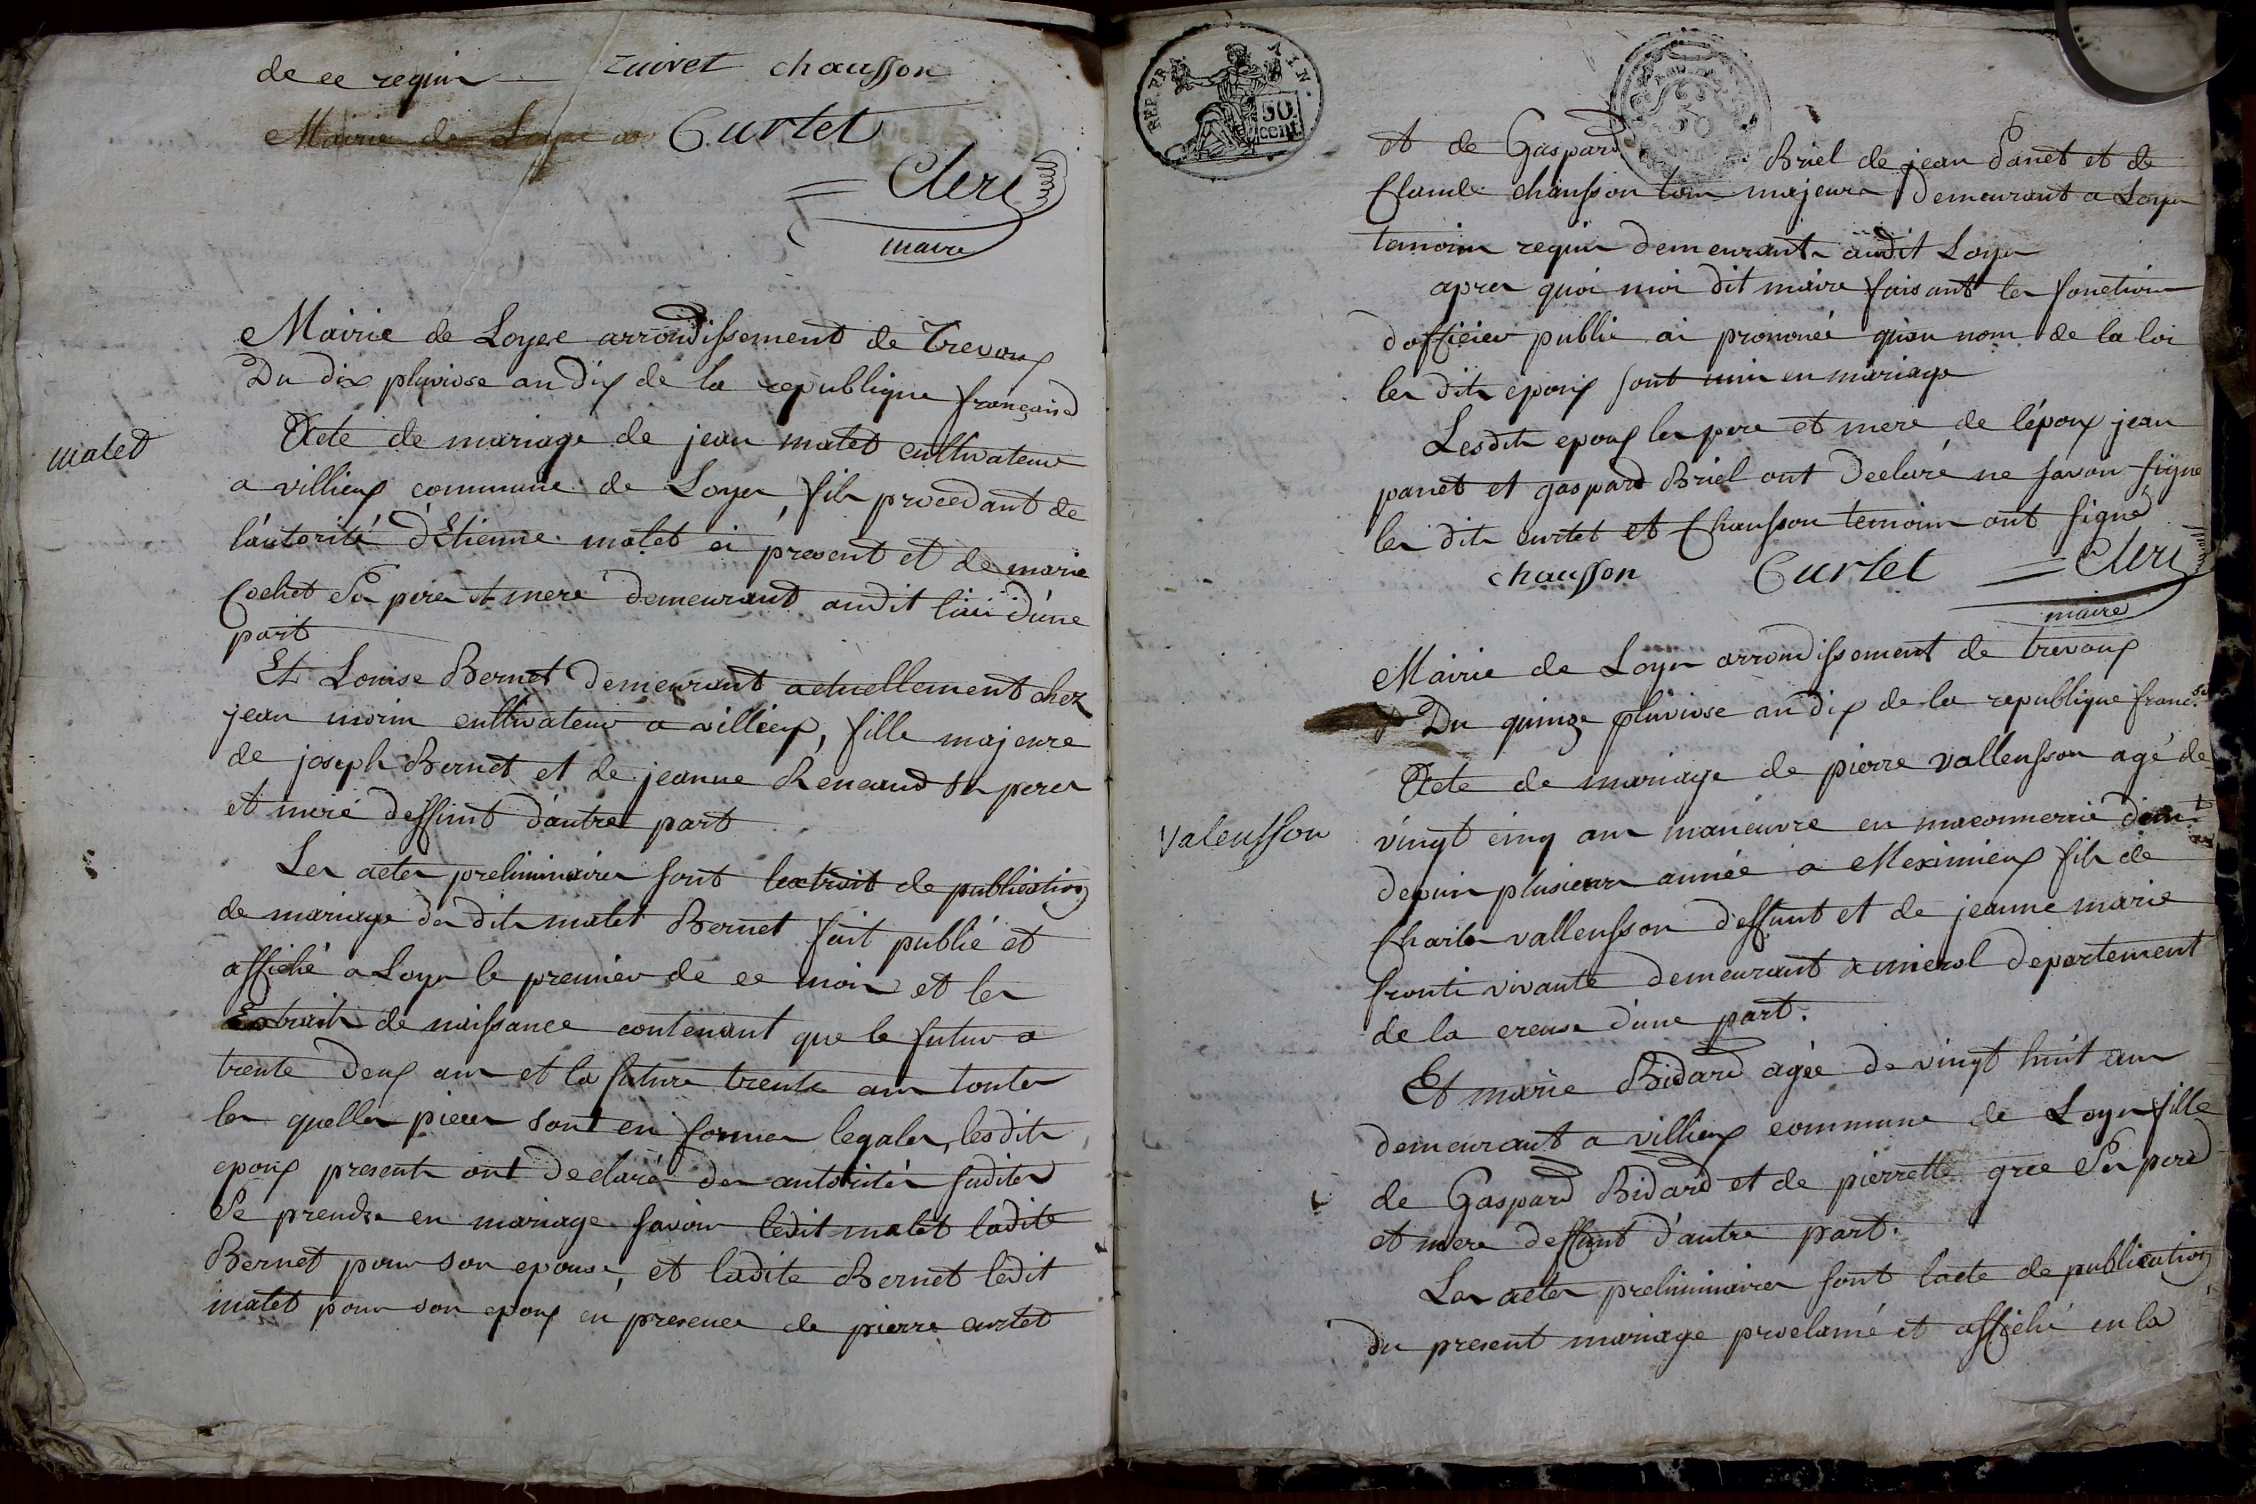 de ce requis Zuivet chausson
Mairie de Loye Curtet
Cleri
maire
Mairie de Loyes arrondissement de Trevoux
Du dix pluviose an dix de la republique française
malet
Acte de mariage de jean malet cultivateur
a villieux commune de Loyes, fils procedant de
l'autorité d'Etienne malet ci present et de marie
Cochet Ses peres et mere demeurant audit lieu d'une
part
Et Louise Bernet demeurant actuellement chez
jean morin cultivateur a villieux, fille majeure
de joseph Bernet et de jeanne Reneaud Ses peres
et mere deffunt d'autre part
Les actes preliminaires sont lextrait de publication
de mariage des dits malet Bernet fait publié et
affiché a Loyes le premier de ce mois et les
Extraits de naissance contenant que le futur a
trente deux ans et la future trente ans toutes
les quelles pieces sont en formes legales, lesdits
epoux presents ont declaré des autorités sudites
Se prendre en mariage savoir ledit malet ladite
Bernet pour son epouse, et ladite Bernet ledit
malet pour son epoux en presence de pierre curtet
REP. FRA 50 cent.
50
et de Gaspard Briel de jean Panet et de
Claude chausson tous majeurs demeurant a Loyes
temoins requis demeurants audit Loyes
apres quoi moi dit maire faisant les fonctions
d'officier public ai prononcé qu'au nom de la loi
les dits epoux sont unis en mariage
Lesdits epoux les pere et mere de l'époux jean
panet et gaspard Briel ont declaré ne savoir signe
les dits curtet et Chausson temoins ont signé
chausson Curtet Cleri
maire
Mairie de Loyes arrondissement de trevoux
Du quinze pluviose an dix de la republique franc.se
Valensson
Acte de mariage de pierre vallensson agé de
vingt cinq ans maneuvre en maconnerie dem.t
depuis plusieurs année a Meximieux fils de
Charles vallensson deffunt et de jeanne marie
fronti vivante demeurant a mierol departement
de la creuse d'une part.
Et marie Bidard agée de vingt huit ans
demeurant a villieux commune de Loyes fille
de Gaspard Bidard et de pierrette gree Ses pere
et mere deffunt d'autre part.
Les actes preliminaires sont lacte de publication
du present mariage proclamé et affiché en la